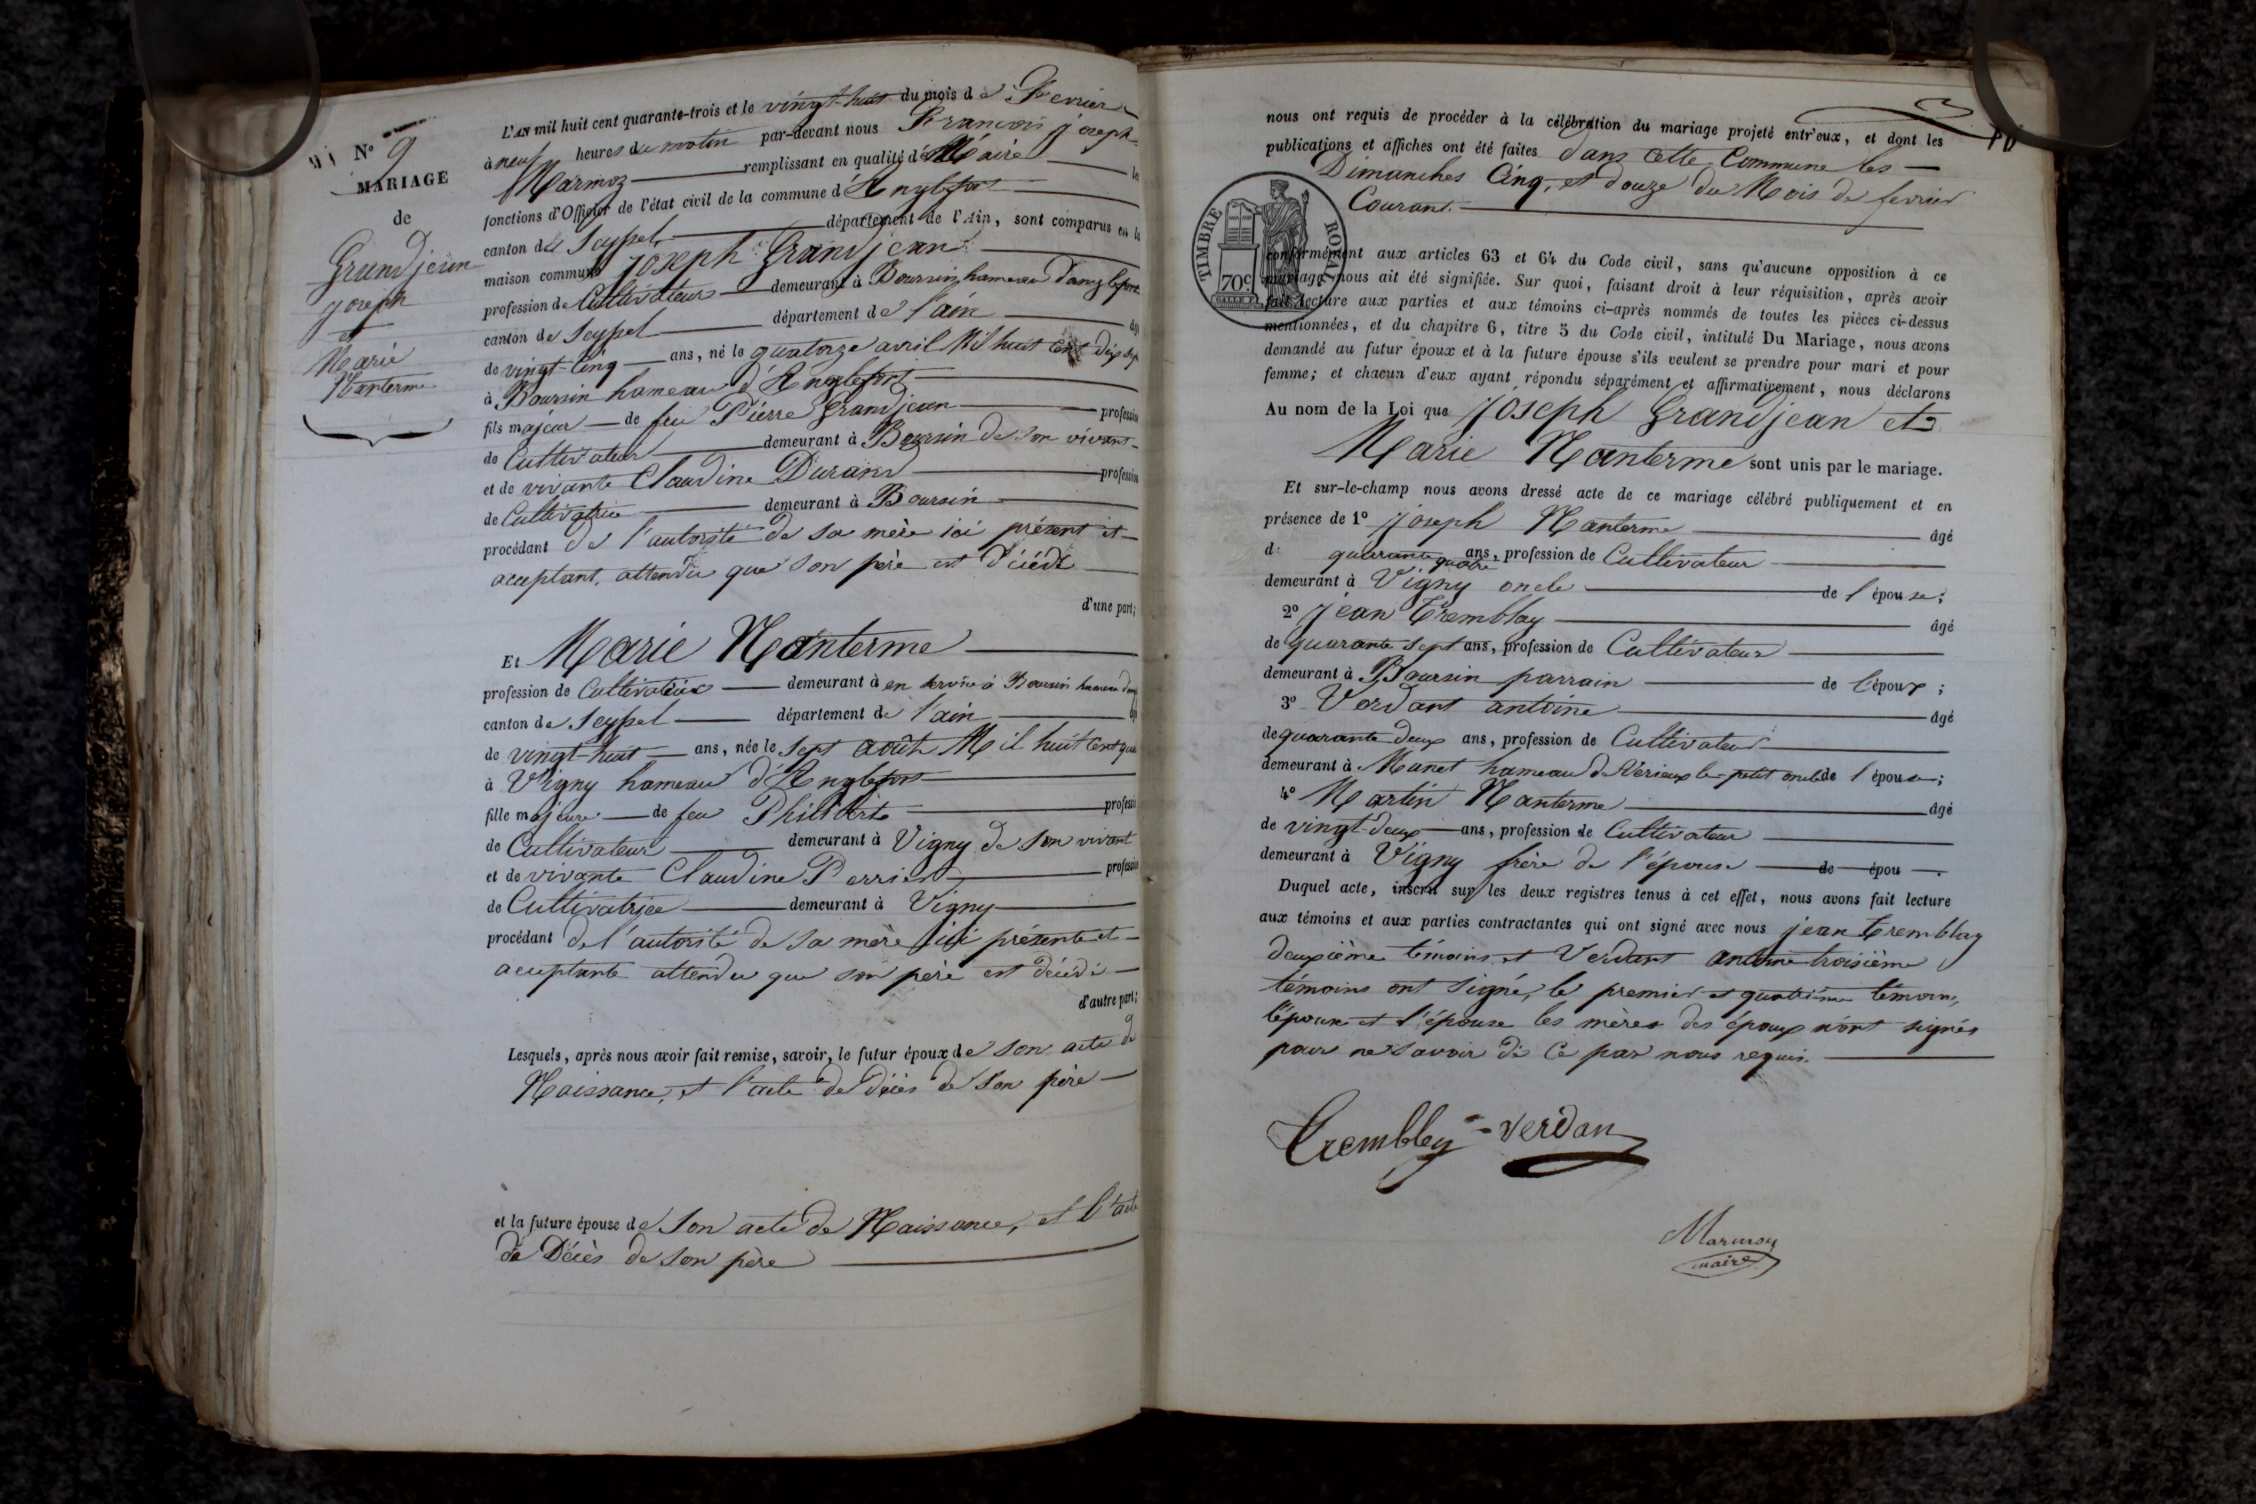 N° 9
MARIAGE
de
Grandjean
joseph
et
Marie
Nanterme
L'AN mil huit cent quarante-trois et le vingt-huit du mois de Fevrier
à neuf heures du matin par-devant nous Francois joseph
Marmoz remplissant en qualité de Maire les
fonctions d'Officier de l'état civil de la commune d'Anglefort
canton de Seyssel département de l'Ain, sont comparus en la
maison commune joseph Grandjean
profession de Cultivateur demeurant à Boursin hameau d'anglefort
canton de Seyssel département de l'ain âgé
de vingt-Cinq ans, né le quatorze avril Mil huit Cent dix sept
à Boursin hameau d'Anglefort
fils majeur de feu Pierre Grandjean profession
de Cultivateur demeurant à Boursin de son vivant
et de vivante Claudine Durand profession
de Cultivatrice demeurant à Boursin
procédant de l'autorité de sa mère ici présent et
aceptant, attendu que son père est décédé
d'une part;
Et Marie Nanterme
profession de Cultivatrice demeurant à en service à Boursin hameau
canton de Seyssel département de l'ain
de vingt-huit ans, née le Sept août Mil huit Cent
à Vigny hameau d'Anglefort
fille majeure de feu Philibert profession
de Cultivateur demeurant à Vigny de son vivant
et de vivante Claudine Perrier profession
de Cultivatrice demeurant à Vigny
procédant de l'autorité de sa mère ici présente et
aceptante attendu que son père est décédé
d'autre part;
Lesquels, après nous avoir fait remise, savoir, le futur époux de son acte de
Naissance, et l'acte de décès de son père
et la future épouse de Son acte de Naissance, et l'acte
de Décès de son père
nous ont requis de procéder à la célébration du mariage projeté entr'eux, et dont les
publications et affiches ont été faites dans Cette Commune les
Dimanches Cinq, et douze du Mois de fevrier
Courant.
TIMBRE ROYAL
70c
conformément aux articles 63 et 64 du Code civil, sans qu'aucune opposition à ce
mariage nous ait été signifiée. Sur quoi, faisant droit à leur réquisition, après avoir
fait lecture aux parties et aux témoins ci-après nommés de toutes les pièces ci-dessus
mentionnées, et du chapitre 6, titre 5 du Code civil, intitulé Du Mariage, nous avons
demandé au futur époux et à la future épouse s'ils veulent se prendre pour mari et pour
femme; et chacun d'eux ayant répondu séparément et affirmativement, nous déclarons
Au nom de la Loi que Joseph Grandjean et
Marie Nanterme sont unis par le mariage.
Et sur-le-champ nous avons dressé acte de ce mariage célébré publiquement et en
présence de 1° Joseph Nanterme âgé
de quarante quatre ans, profession de Cultivateur
demeurant à Vigny oncle de l'épouse;
2° jean Tremblay âgé
de quarante sept ans, profession de Cultivateur
demeurant à Boursin parrain de l'époux;
3° Verdant antoine âgé
de quarante deux ans, profession de Cultivateur
demeurant à Munet hameau de Vérieux le petit oncle de l'épouse;
4° Martin Nanterme âgé
de vingt-deux ans, profession de Cultivateur
demeurant à Vigny frère de l'épouse de épou.
Duquel acte, inscrit sur les deux registres tenus à cet effet, nous avons fait lecture
aux témoins et aux parties contractantes qui ont signé avec nous jean Tremblay
deuxième témoins, et Verdant antoine troisième
témoins ont signé, le premier et quatrième témoin,
l'époux et l'épouse les mères des époux n'ont signés
pour ne savoir de ce par nous requis.
Trembley Verdan
Marmoz
maire